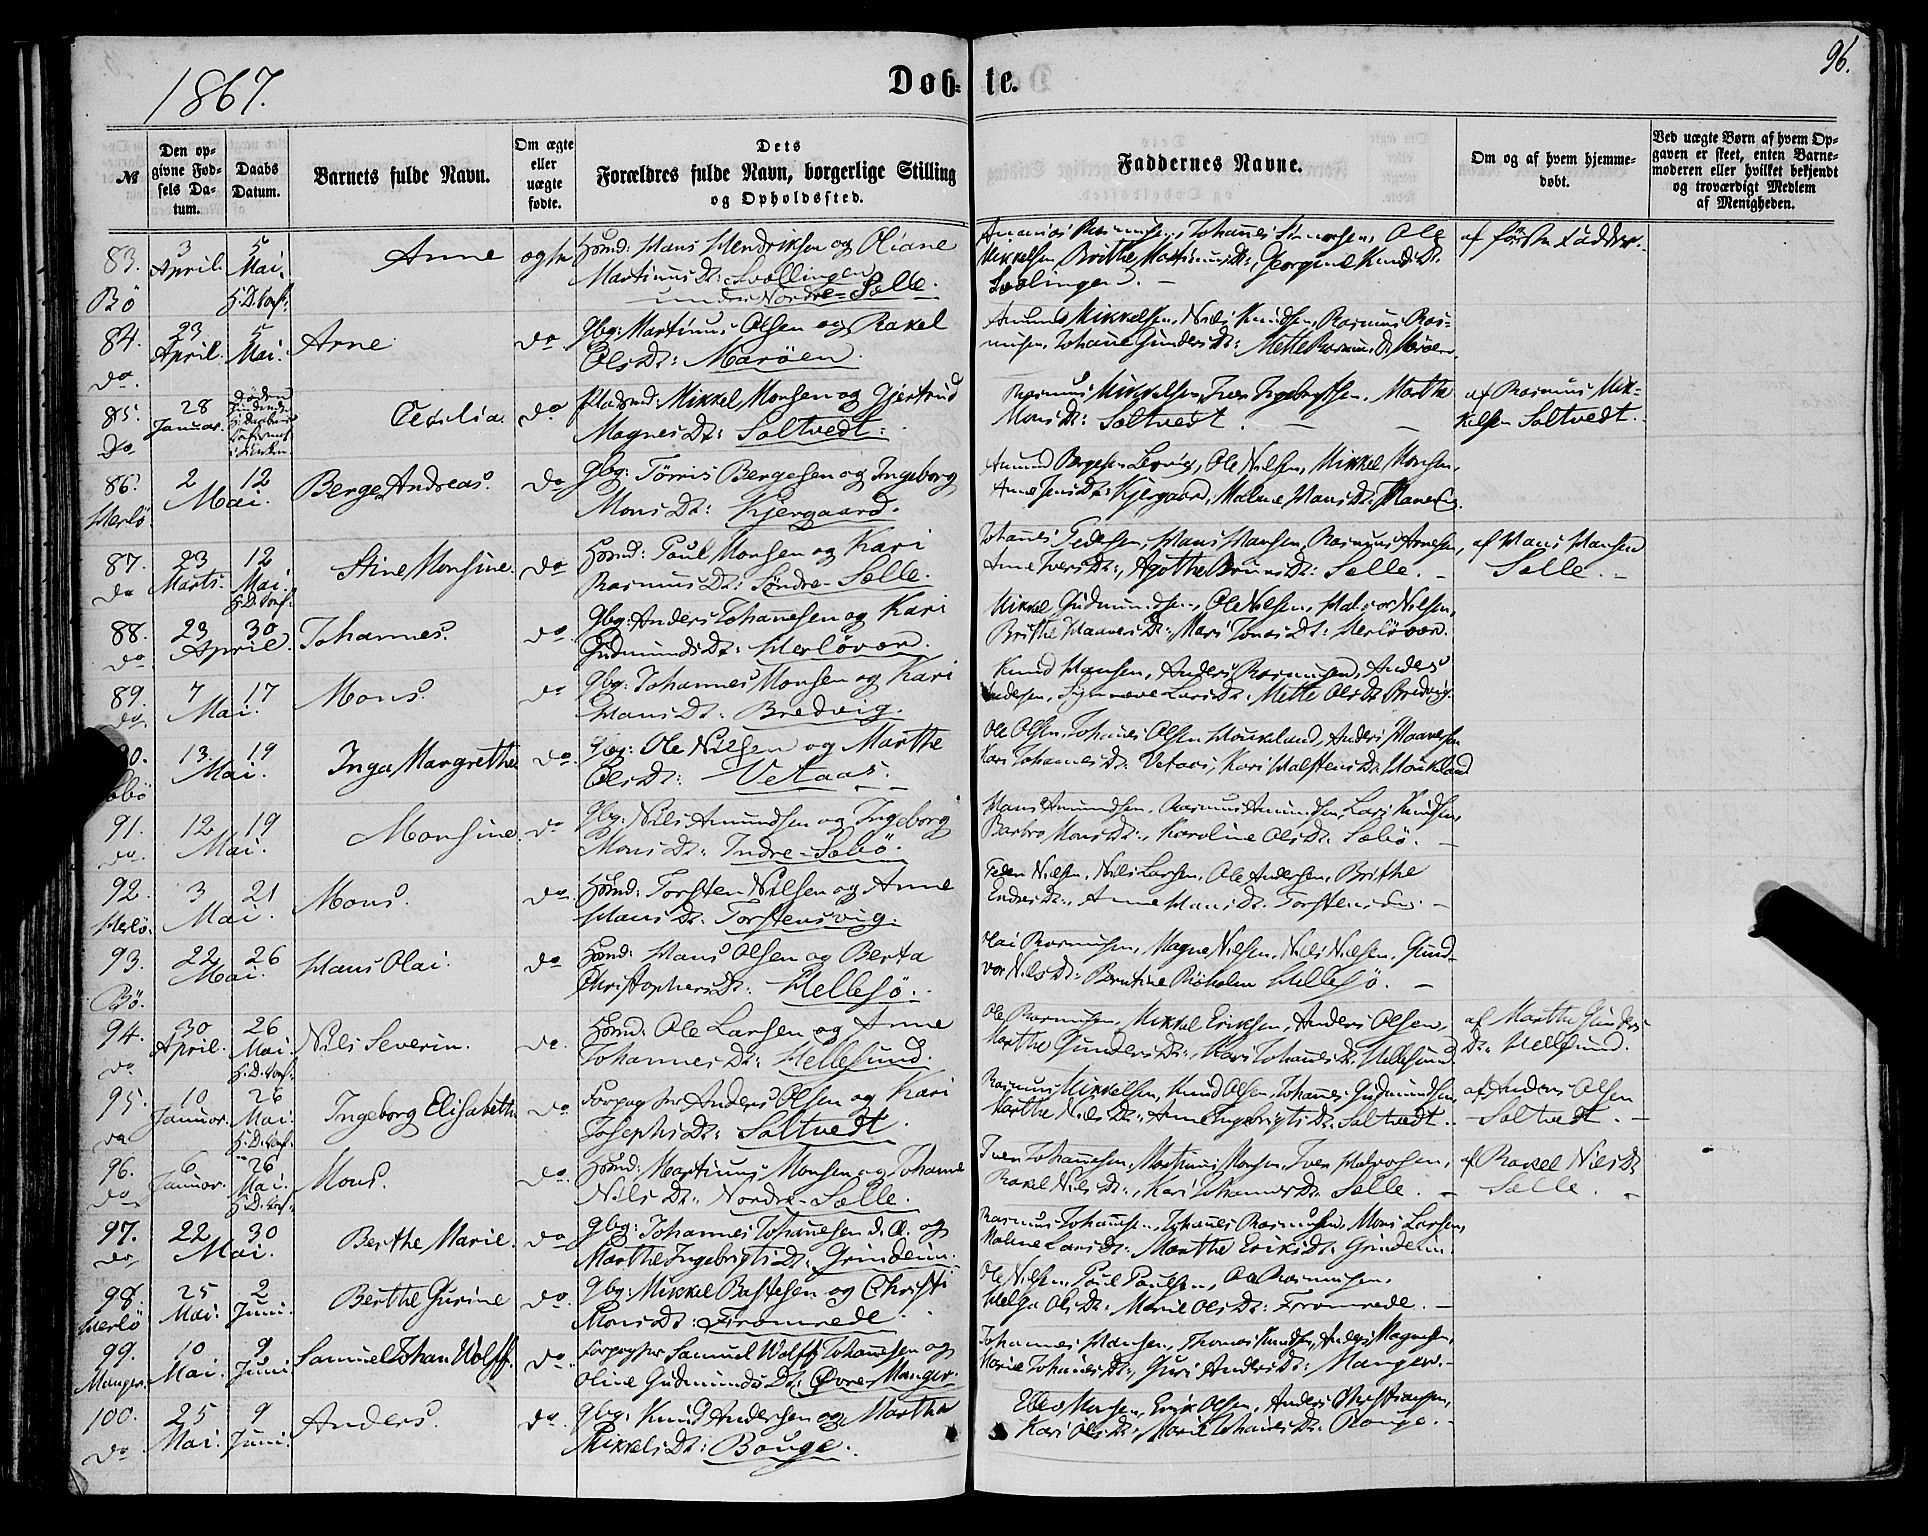 1867.
Døb- te.
96.
№
Den op-
givne Fød-
sels Da-
tum.
Daabs
Datum.
Barnets fulde Navn.
Om ægte
eller
uægte
fødte.
Dets
Forældres fulde Navn, borgerlige Stilling
og Opholdssted.
Faddernes Navne.
Om og af hvem hjemme-
døbt.
Ved uægte Børn af hvem Op-
gaven er skeet, enten Barne-
moderen eller hvilket bekjendt
og troværdigt Medlem
af Menigheden.
83. Bö
3 April.
5 Mai.
Anne
Hans Hendriksen og Oliane
Martinus Dt:
under Nordre-Sælle.
Johannes Ole
Mikkelsen, Brithe Martinus Dt:, Georgine Knuds Dt:
af første Fadder.
84. do.
23 April.
5 Mai.
Arne
do
Gbg: Martinus Olsen og Rakel
Ols Dt: Marøen.
Mikkelsen, Nils Knudsen, Rasmus Ras-
musen, Johanne Gunders Dt: Mette Rasmus Dt:
85. Do
28 Januar.
Cecilia.
do
Pladsmd: Mikkel Monsen og Gjertrud
Magnes Dt: Saltvedt.
Rasmus Mikkelsen, Iver Ingebrigtsen, Marthe
Mons Dt: Saltvedt.
af Rasmus Mik-
kelsen Saltvedt.
86. Herlö.
2 12
Mai.
Berge Andreas.
Do
Gbg: Tørris Bergesen og Ingeborg
Mons Dt: Kjergaard.
Amund Bergesen Ole Nilsen, Mikkel Monsen,
Anne Jens Dt: Kjergaard, Malene Hans Dt:
87. Do
23 Marts.
12 Mai.
Stine Monsine.
Do
Poul Monsen og Kari
Rasmus Dt: Søndre-Sælle.
Johannes Pedersen, Hans Hansen, Rasmus Arnesen,
Anne Ivers Dt:, Agathe Dt: Sælle.
af Hans Hansen
Sælle.
88. do
23 30
April.
Johannes.
do
Gbg: Anders Johannesen og Kari
Gudmunds Dt: Herløvær.
Mikkel Gudmundsen, Ole Nilsen, Halvor Nilsen,
Brithe Haavers Dt: Mari Jonas Dt: Herløvær.
89. do.
7 17
Mai.
Mons.
do
Gbg: Johannes Monsen og Kari
Hans Dt: Bredvig.
Knud Hansen, Anders Rasmusen, Anders
Lars Dt: Mette Ols Dt: Bredvig.
13 19
Mai.
Inga Margrethe
do.
Gbg: Ole Nilsen og Marthe
Ols Dt: Vetaas.
Ole Olsen, Johannes Olsen Anders Haavesen
Kari Johannes Dt: Vetaas, Kari
91. do.
12 19
Mai.
Monsine.
do
Gbg: Nils Amundsen og Ingeborg
Mons Dt: Indre-Sæbö.
Hans Amundsen, Rasmus Amundsen, Lars Knudsen,
Barbro Mons Dt:, Karoline Ols Dt: Sæbö.
92. Herlö.
3 21
Mai.
Mons.
do.
Torsten Nilsen og Anne
Hans Dt: Torstensvig.
Peder Nilsen, Nils Larsen, Ole Andersen, Brithe
Endres Dt:, Anne Hans Dt:
93. Bö.
22 26
Mai.
Hans Olai.
do
Hans Olsen og Berta
Christophers Dt: Hellesö.
Olai Rasmusen, Magne Nilsen, Nils Nilsen, Gund-
vor Nils Dt: Hellesö.
94. do
30 April.
26 Mai.
Nils Severin.
do.
Ole Larsen og Anne
Johannes Dt: Hellesund.
Ole Rasmusen, Mikkel Eriksen, Anders Olsen,
Marthe Gunders Dt:, Kari Johannes Dt: Hellesund.
af Marthe Gunders
Dt: Hellesund.
95. do
10 Januar.
26 Mai.
Ingeborg Elisabeth
do.
Forpagter Anders Olsen og Kari
Josephs Dt: Saltvedt.
Rasmus Mikkelsen, Knud Olsen, Johannes Gudmundsen,
Marthe Nils Dt:, Anne Engebrigts Dt: Saltvedt.
af Anders Olsen
Saltvedt.
96. do
6 Januar.
26 Mai.
Mons.
do.
Martinus Monsen og Johanne
Nils Dt: Nordre-Sælle.
Iver Johannesen, Martinus Monsen, Iver Halvorsen,
Rakel Nils Dt:, Kari Johannes Dt: Sælle.
af Rakel Nils Dt
Sælle.
97. do
22 30
Mai.
Berthe Marie.
do
Gbg: Johannes Johannesen d. Æ. og
Marthe Ingebrigts Dt: Grindeim.
Rasmus Johannesen, Johannes Rasmusen, Mons Larsen,
Malene Lars Dt: Marthe Eriks Dt: Grindeim.
98. Herlö
25 Mai.
2 Juni.
Berthe Gurine
do.
Gbg: Mikkel Bastesen og Christi
Mons Dt: Fromrede.
Ole Nilsen, Poul Poulsen, Rasmusen,
Helga Ols Dt: Marie Ols Dt: Fromrede.
99. Manger.
10 Mai.
9 Juni.
Samuel Johan Wolff.
do.
Forpagter Samuel Wolff Johannesen og
Oline Gudmunds Dt: Øvre Manger.
Johannes Hansen, Thomas Knudsen, Anders Magnesen,
Marie Johannes Dt:, Guri Anders Dt: Manger.
100. Do
25 Mai.
9 Juni.
Anders.
do.
Gbg: Knud Andersen og Marthe
Mikkels Dt: Bouge.
Monsen, Erik Olsen, Anders Christiansen,
Kari Ols Dt:, Marie Johannes Dt: Bouge.